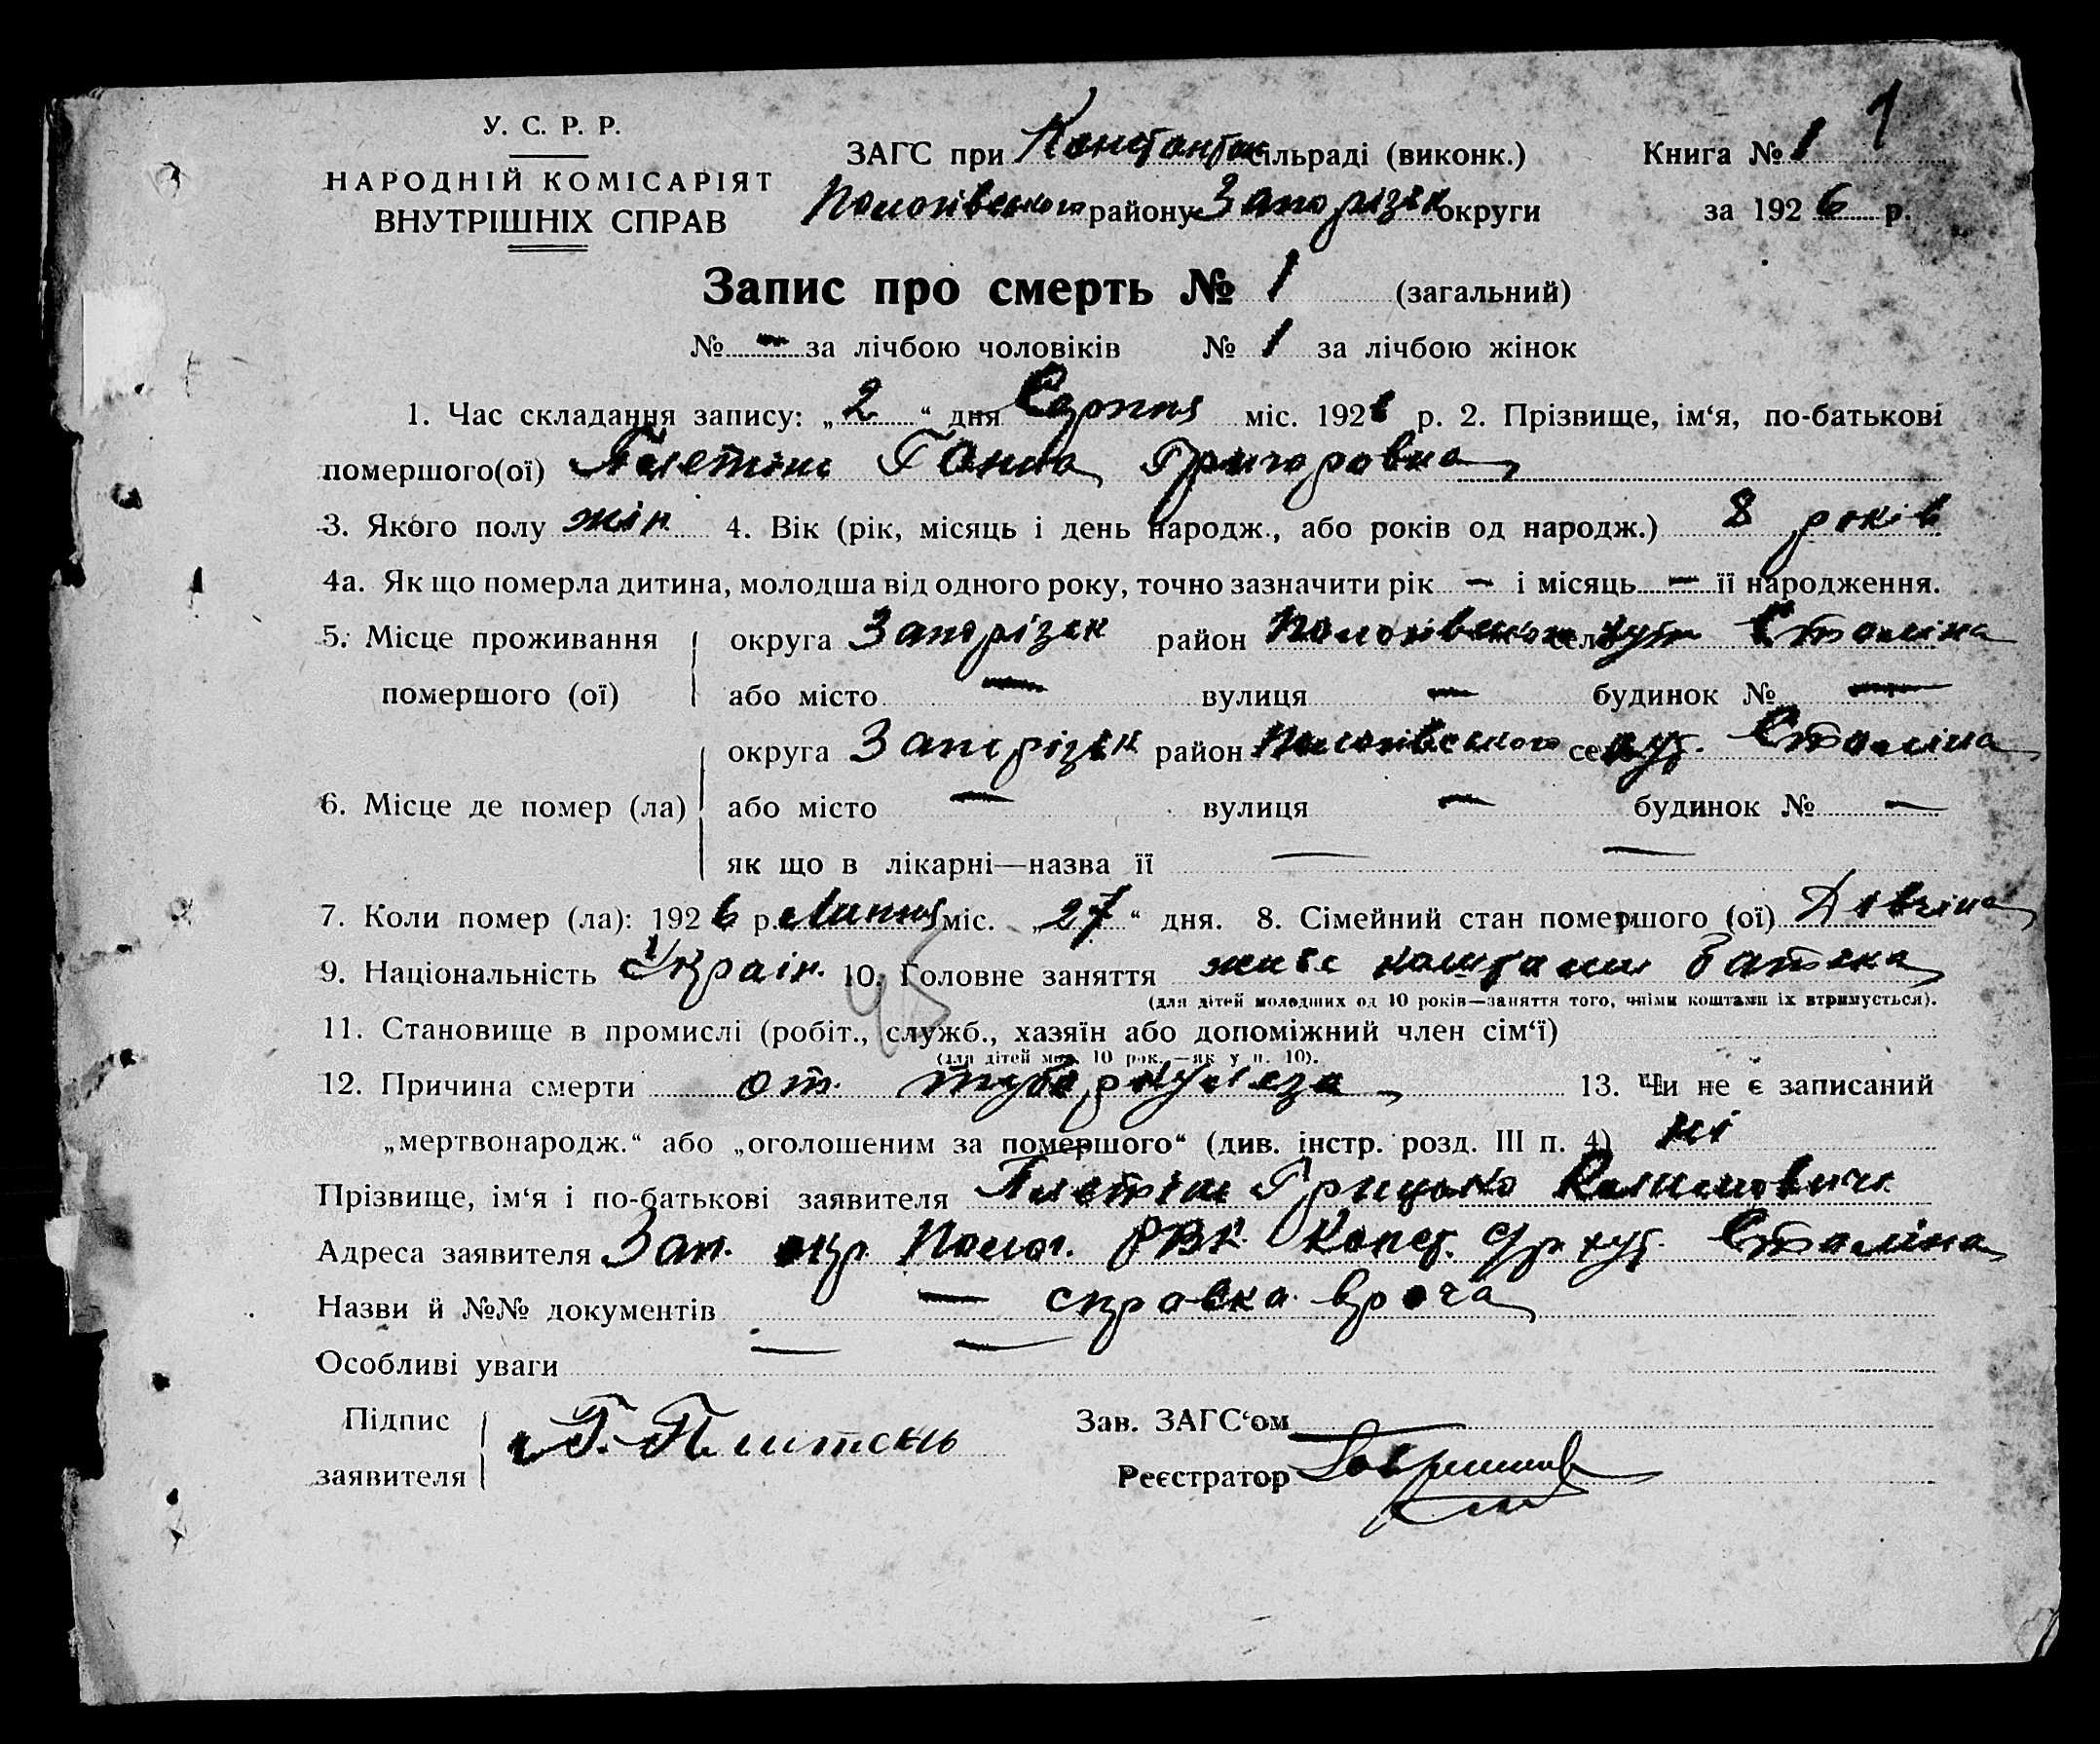 У. С. Р. Р.
НАРОДНІЙ КОМІСАРІЯТ
ВНУТРІШНІХ СПРАВ
ЗАГС при Константин сільраді (виконк.)
Пологівського району Запорізьк округи
Книга № 1 1
за 1926 р.
Запис про смерть № 1 (загальний)
№ – за лічбою чоловіків № 1 за лічбою жінок
1. Час складання запису: „2“ дня Серпня міс. 1926 р. 2. Прізвище, ім‘я, по-батькові
помершого(ої) Ганна Григоровна
3. Якого полу жін 4. Вік (рік, місяць і день народж., або років од народж.) 8 років
4а. Як що померла дитина, молодша від одного року, точно зазначити рік – і місяць – її народження.
5. Місце проживання округа Запорізьк район Пологівського село хут Сталіна
помершого (ої) або місто – вулиця – будинок № –
округа Запорізьк район Пологівського се хут. Сталіна
6. Місце де помер (ла) або місто – вулиця – будинок № –
як що в лікарні—назва її – –
7. Коли помер (ла): 1926 р. Липня міс. „27“ дня. 8. Сімейний стан помершого (ої) Дівчина
9. Національність Україн. 10. Головне заняття живе коштами батька
(для дітей молодших од 10 років—заняття того, чиїми коштами їх втримується).
11. Становище в промислі (робіт., служб., хазяїн або допоміжний член сім‘ї)
(для дітей мол. 10 рок.—як у п. 10).
12. Причина смерти от туберкульоза 13. Чи не є записаний
„мертвонародж.“ або „оголошеним за помершого“ (див. інстр. розд. III п. 4) ні
Прізвище, ім‘я і по-батькові заявителя Грицько Климович
Адреса заявителя Зап. окр. Полог. РВК Конст. с/р хут. Сталіна
Назви й №№ документів – справка врача
Особливі уваги – –
Підпис Г. Плитень
заявителя
Зав. ЗАГС‘ом
Реєстратор